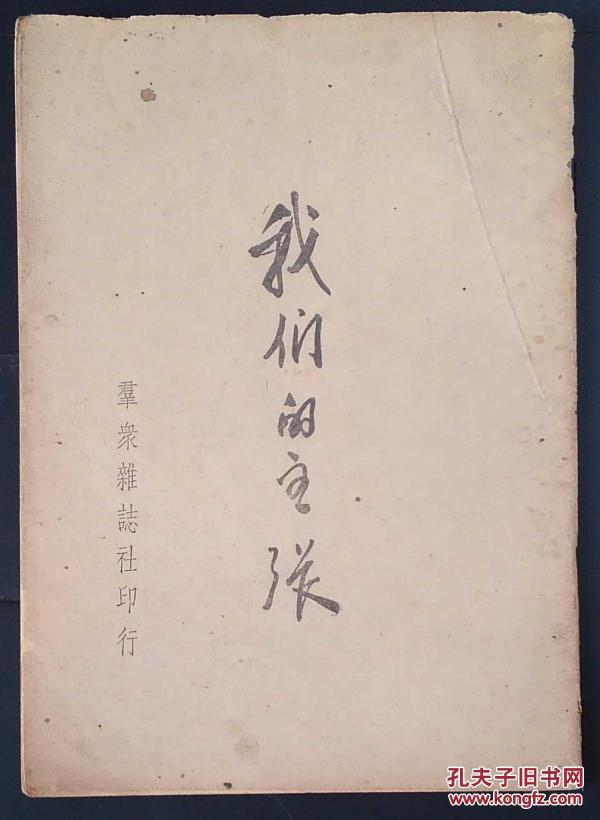 我们的主张
羣衆雜誌社印行
孔夫子旧书网
www.kongfz.com